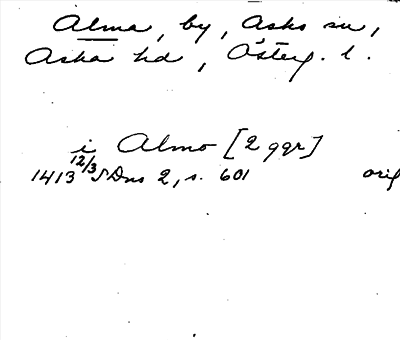 Alma, by, Asks sn,
Aska hd, Österg. l.
i Almo [2 ggr]
1413 12/3 SDns 2, s. 601 orig